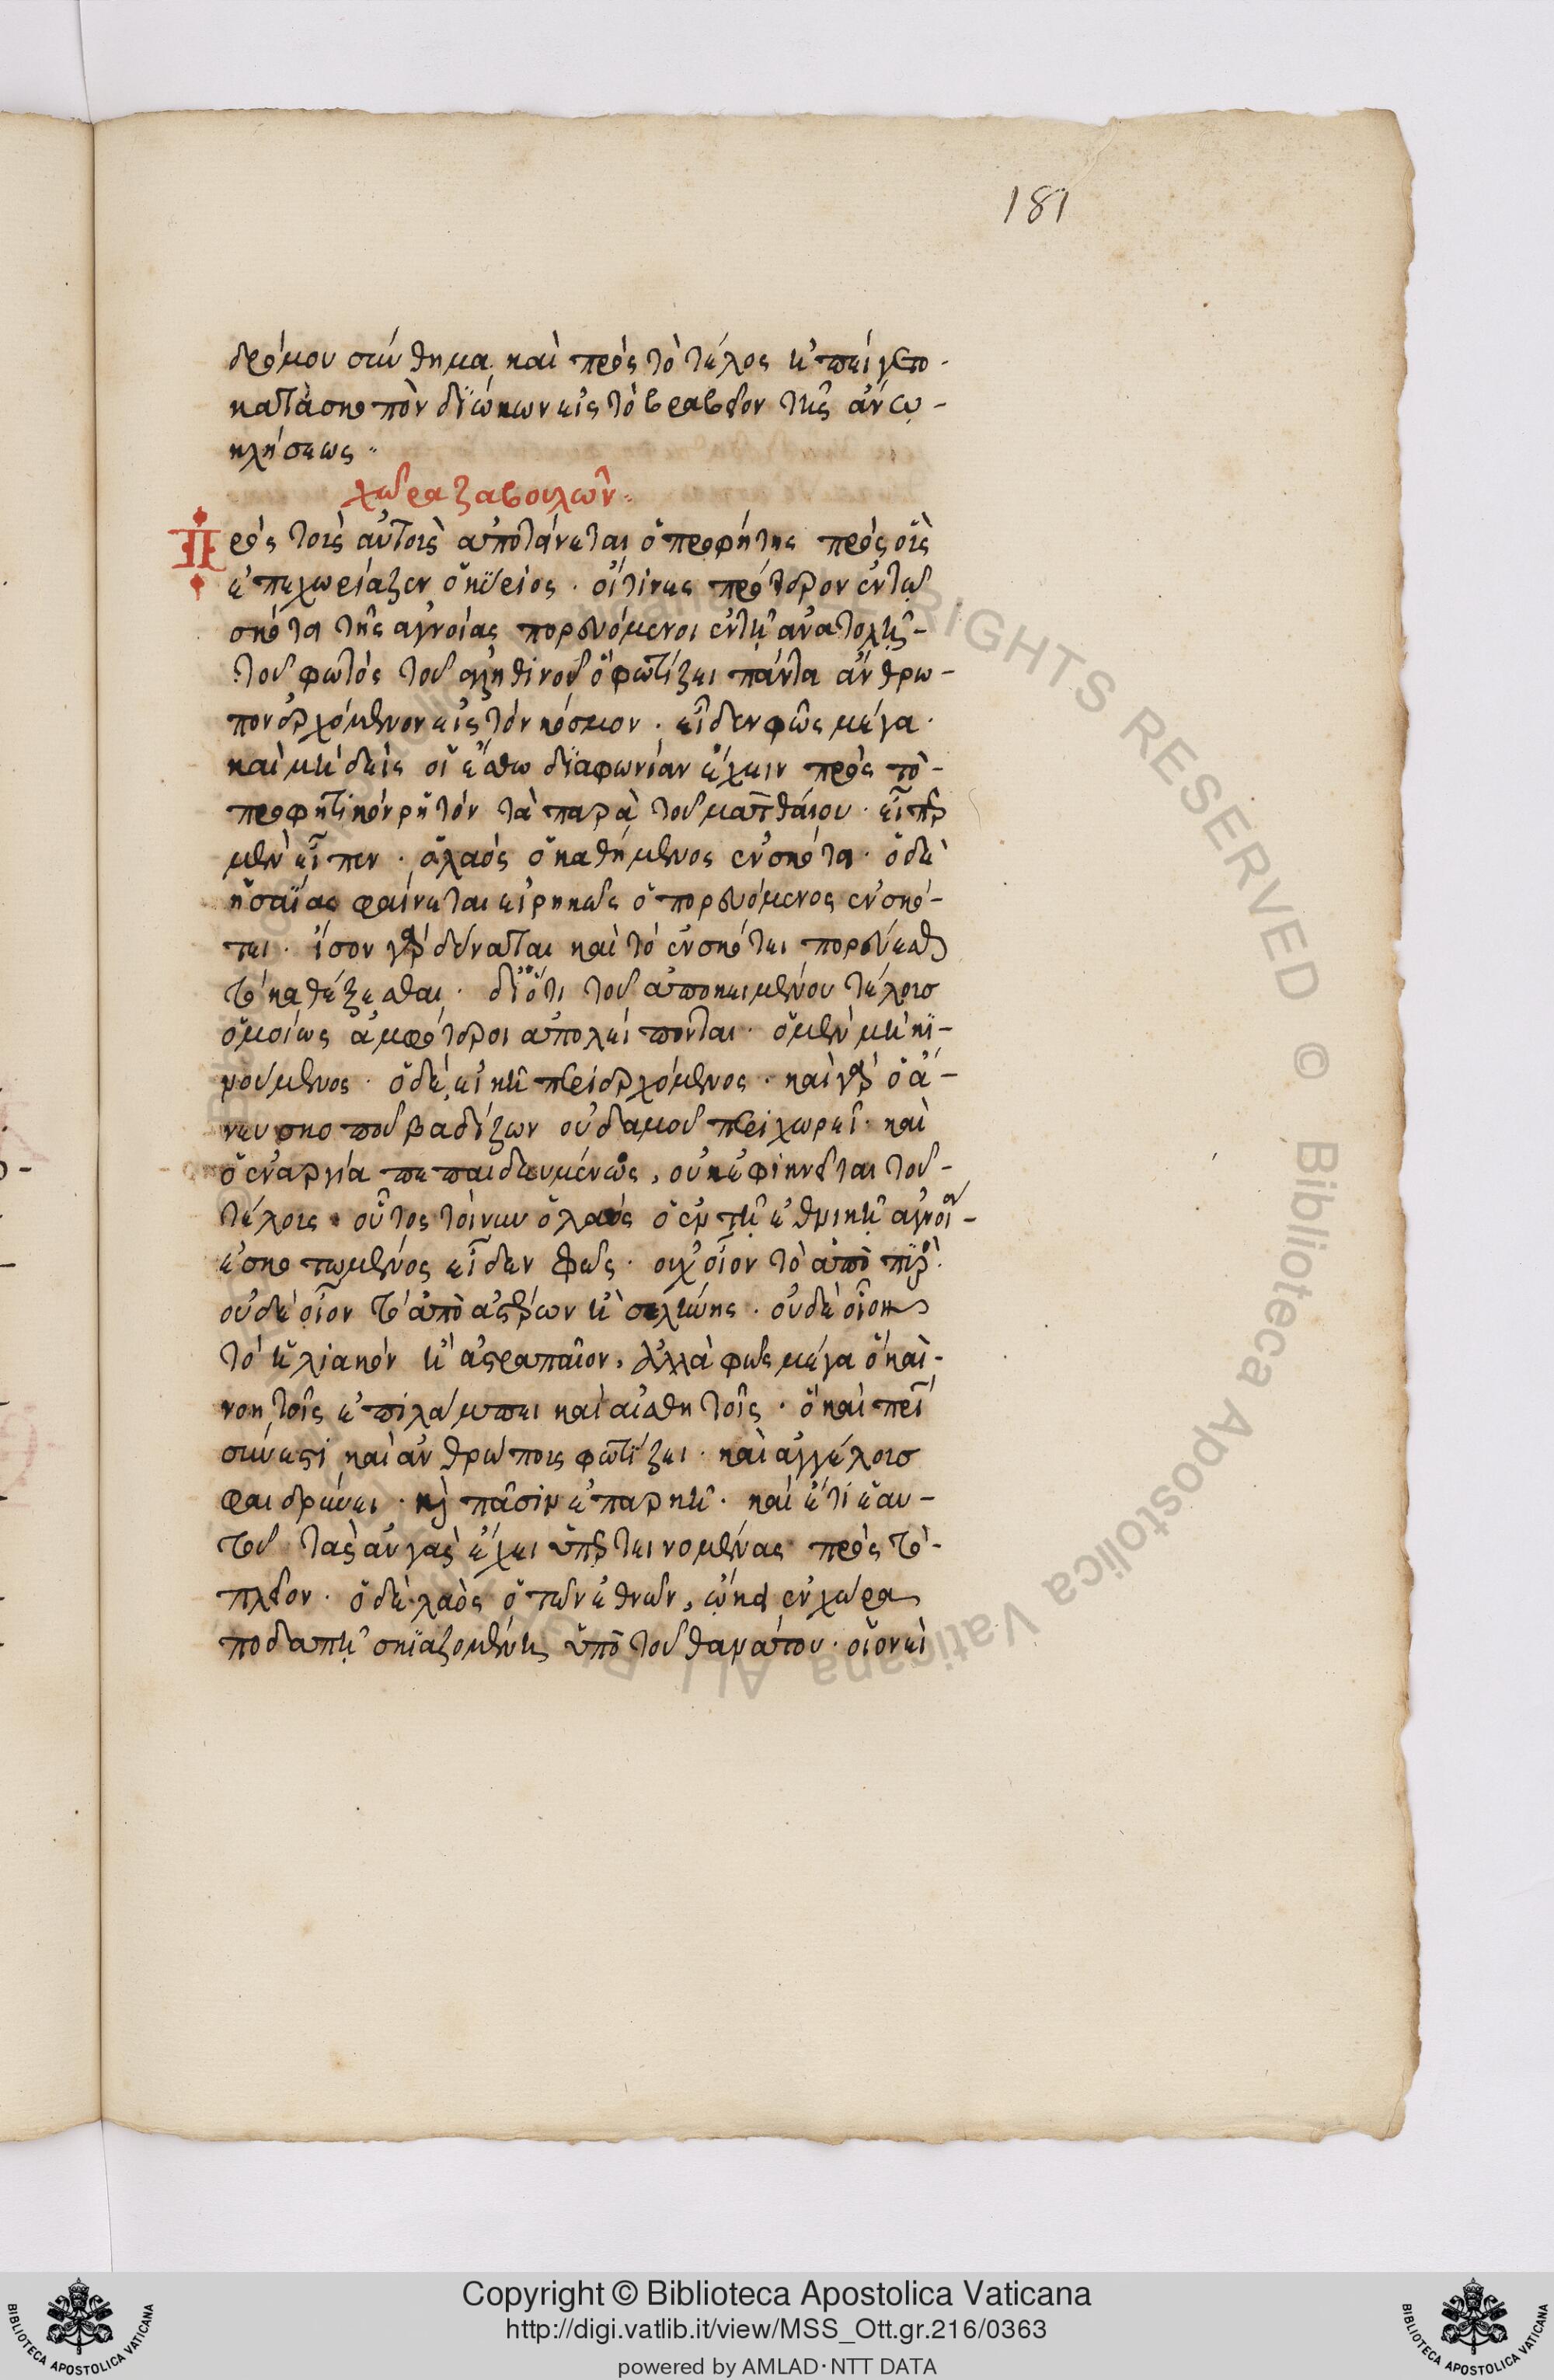 181
δρόμου σύνθημα. καὶ πρὸς τὸ τέλος ἠπείγετο.
κατὰ σκοπὸν διώκων εἰς τὸ βραβεῖον τῆς ἄνω
κλήσεως.
χώρα ζαβουλών.
Πρὸς τοὺς αὐτοὺς ἀποτάνεται ὁ προφήτης πρὸς οὓς
ἐπεχωρίαζεν ὁ κύριος. οἵτινες πρότερον ἐν τῷ
σκότει τῆς ἀγνοίας πορευόμενοι ἐν τῇ ἀνατολῇ
τοῦ φωτὸς τοῦ ἀληθινοῦ ὃ φωτίζει πάντα ἄνθρω-
πον ἐρχόμενον εἰς τὸν κόσμον. εἶδεν φῶς μέγα.
καὶ μηδεὶς οἰέσθω διαφωνίαν ἔχειν πρὸς τὸ
προφητικὸν ῥητὸν τὰ παρὰ τοῦ ματθαίου. εἴπερ
μὲν εἶπεν. ὁ λαὸς ὁ καθήμενος ἐν σκότει. ὁ δὲ
ἡσαΐας φαίνεται εἰρηκὼς ὁ πορευόμενος ἐν σκό-
τει. ἴσον γὰρ δύναται καὶ τὸ ἐν σκότει πορεύεσθαι
τὸ καθέζεσθαι. διότι τοῦ ἀποκειμένου τέλους
ὁμοίως ἀμφότεροι ἀπολείπονται. ὁ μὲν μὴ κι-
νούμενος. ὁ δὲ, εἰκῆ περιερχόμενος. καὶ γὰρ ὁ ἄ-
νευ σκοποῦ βαδίζων οὐδαμοῦ περιχωρεῖ. καὶ
ὁ ἐν ἀργία πεπαιδευμένως, οὐκ ἐφικνεῖται τοῦ
τέλους. οὗτος τοίνυν ὁ λαὸς ὁ ἐν τῇ ἐθνικῇ ἀγνοίᾳ
ἐσκοτωμένος εἶδεν φῶς. οὐχ οἷον τὸ ἀπὸ πυρὸς.
οὐδὲ οἷον τὸ ἀπὸ ἀστέρων ἢ σελήνης. οὐδὲ οἷον
τὸ ἡλιακὸν ἢ ἀστραπαῖον, ἀλλὰ φῶς μέγα ὃ καὶ
νοητοῖς ἐπιλάμπει καὶ αἰσθητοῖς. ὃ καὶ περὶ
σύνεστι καὶ ἀνθρώπους φωτίζει. καὶ ἀγγέλους
φαιδρύνει. καὶ πᾶσιν ἐπαρκῆ. καὶ ἔτι ἑαυ-
τοῦ τὰς αὐγὰς ἔχει ὑπερτεινομένας πρὸς τὸ
πλεῖον. ὁ δὲ λαὸς ὁ τῶν ἐθνῶν, ᾤκει ἐν χώρα
ποδαπῇ σκιαζομένῃ ὑπὸ τοῦ θανάτου. οἱονεὶ
Copyright © Biblioteca Apostolica Vaticana
http://digi.vatlib.it/view/MSS_Ott.gr.216/0363
powered by AMLAD·NTT DATA
BIBLIOTECA APOSTOLICA VATICANA
BIBLIOTECA APOSTOLICA VATICANA
Biblioteca Apostolica Vaticana ALL RIGHTS RESERVED ©